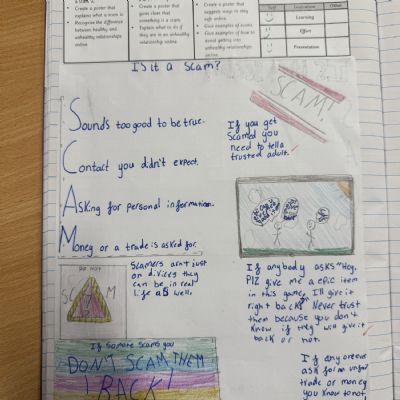 Create a poster that explains what a scam is
Recognise the difference between healthy and unhealthy relationships online
Create a poster that gives clear that something is a scam.
Explain what to do if they are in an unhealthy relationship online.
Create a poster that suggests ways to stay safe online.
Give examples of scams.
Give examples of how to avoid getting into unhealthy relationships online.
Self
Other
Learning
Effort
Presentation
Is it a Scam?
SCAM!
Sounds too good to be true.
Contact you didn't expect.
Asking for personal information.
Money or a trade is asked for.
If you get
Scamed you
need to tell a
trusted adult.
DO NOT
SCAM
Scamers arnt just
on divices they
can be in real
life as well.
If anybody asks "Hey,
Plz give me a epic item
in this game, I'll give it
right back" Never trust
them because you don't
know if they will give it
back or not.
If someone Scams you
DON'T SCAM THEM
BACK!
If any oneve
ask for an unfair
trade or money
you know to not,